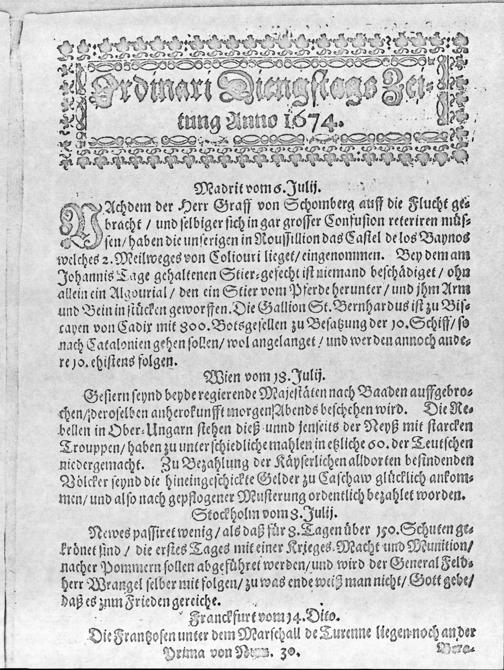 Ordinari Diengstags Zei-
tung Anno 1674.
Madrit vom 6. Julij.
NAchdem der Herr Graff von Schomberg auff die Flucht ge-
bracht / und selbiger sich in gar grosser Confusion reteriren müs-
sen / haben die unserigen in Roussillion das Castel de los Baynos
welches 2. Meilweges von Coliouri lieget / eingenommen. Bey dem am
Johannis Tage gehaltenen Stier-gefecht ist niemand beschädiget / ohn
allein ein Algourial / den ein Stier vom Pferde herunter / und jhm Arm
und Bein in stücken geworffen. Die Gallion St. Bernhardus ist zu Bis-
cayen von Cadix mit 800. Botsgesellen zu Besatzung der 10. Schiff / so
nach Catalonien gehen sollen / wol angelanget / und werden annoch ande-
re 10. ehistens folgen.
Wien vom 18. Julij.
Gestern seynd beyde regierende Majestäten nach Baaden auffgebro-
chen / deroselben anherokunfft morgen Abends beschehen wird. Die Re-
bellen in Ober-Ungarn stehen dieß- unnd jenseits der Neyß mit starcken
Trouppen / haben zu unterschiedliche mahlen in etzliche 60. der Teutschen
niedergemacht. Zu Bezahlung der Käyserlichen alldorten befindenden
Völcker seynd die hineingeschickte Gelder zu Caschaw glücklich ankom-
men / und also nach gepflogener Musterung ordentlich bezahlet worden.
Stockholm vom 8. Julij.
Newes passiret wenig / als daß für 8. Tagen über 150. Schuten ge-
krönet sind / die erstes Tages mit einer Krieges-Macht und Munition /
nacher Pommern sollen abgeführet werden / und wird der General Feld-
herr Wrangel selber mit folgen / zu was ende weiß man nicht / Gott gebe /
daß es zum Frieden gereiche.
Franckfurt vom 14. Dito.
Die Frantzosen unter dem Marschall de Turenne liegen noch an der
Prima von Num. 30.